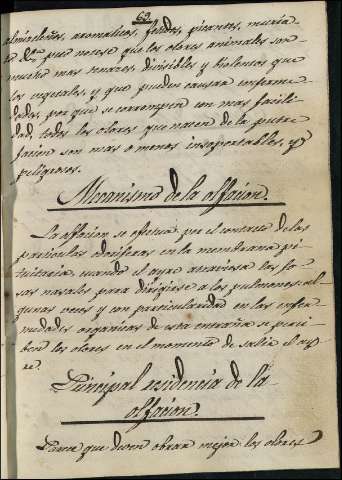 69.
almizcleños, aromaticos, fetidos, picantes, muria-
t.s &.a pues notese que los olores animales son
mucho mas tenaces, divisibles y violentos que
los vegetales, y que pueden causar enferme-
dades, por que se corrompen con mas facili-
dad, todos los olores que nacen de la putre
facion son mas o menos insoportables, y
peligrosos.
Mecanismo de la olfacion.
La olfacion se efectua por el contacto de las
particulas odoriferas en la membrana pi-
tuitaria, cuando el ayre atraviesa las fo-
sas nasales para dirigirse a los pulmones: al-
gunas veces y con particularidad en las enfer-
medades organicas de esta entraña se perci-
ben los olores en el momento de salir el ay-
re.
Principal residencia de la
olfacion.
Parece que deven obrar mejor los olores